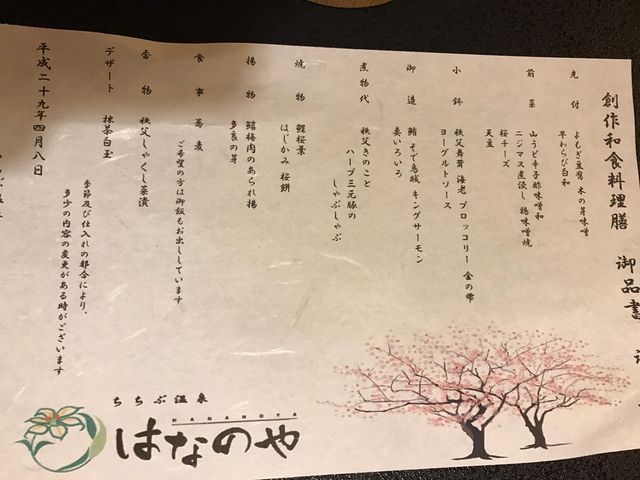 創作和食料理膳 御品書
先付
よもぎ豆腐 木の芽味噌
早わらび白和
前菜
山うど辛子酢味噌和
ニジマス煮浸し 鶏味噌焼
桜チーズ
天豆
小鉢
秩父舞茸 海老 ブロッコリー 金の雫
ヨーグルトソース
御造
鮪 そで烏賊 キングサーモン
妻いろいろ
煮物代
秩父きのこと
ハーブ三元豚の
しゃぶしゃぶ
焼物
鰆桜葉
はじかみ 桜餅
揚物
鱚梅肉のあられ揚
多良の芽
食事
蕎麦
ご希望の方は御飯もお出ししています
香物
秩父しゃくし菜漬
デザート
抹茶白玉
季節及び仕入れの都合により、
多少の内容の変更がある時がございます
平成二十九年四月八日
ちちぶ温泉
HANANOYA
はなのや